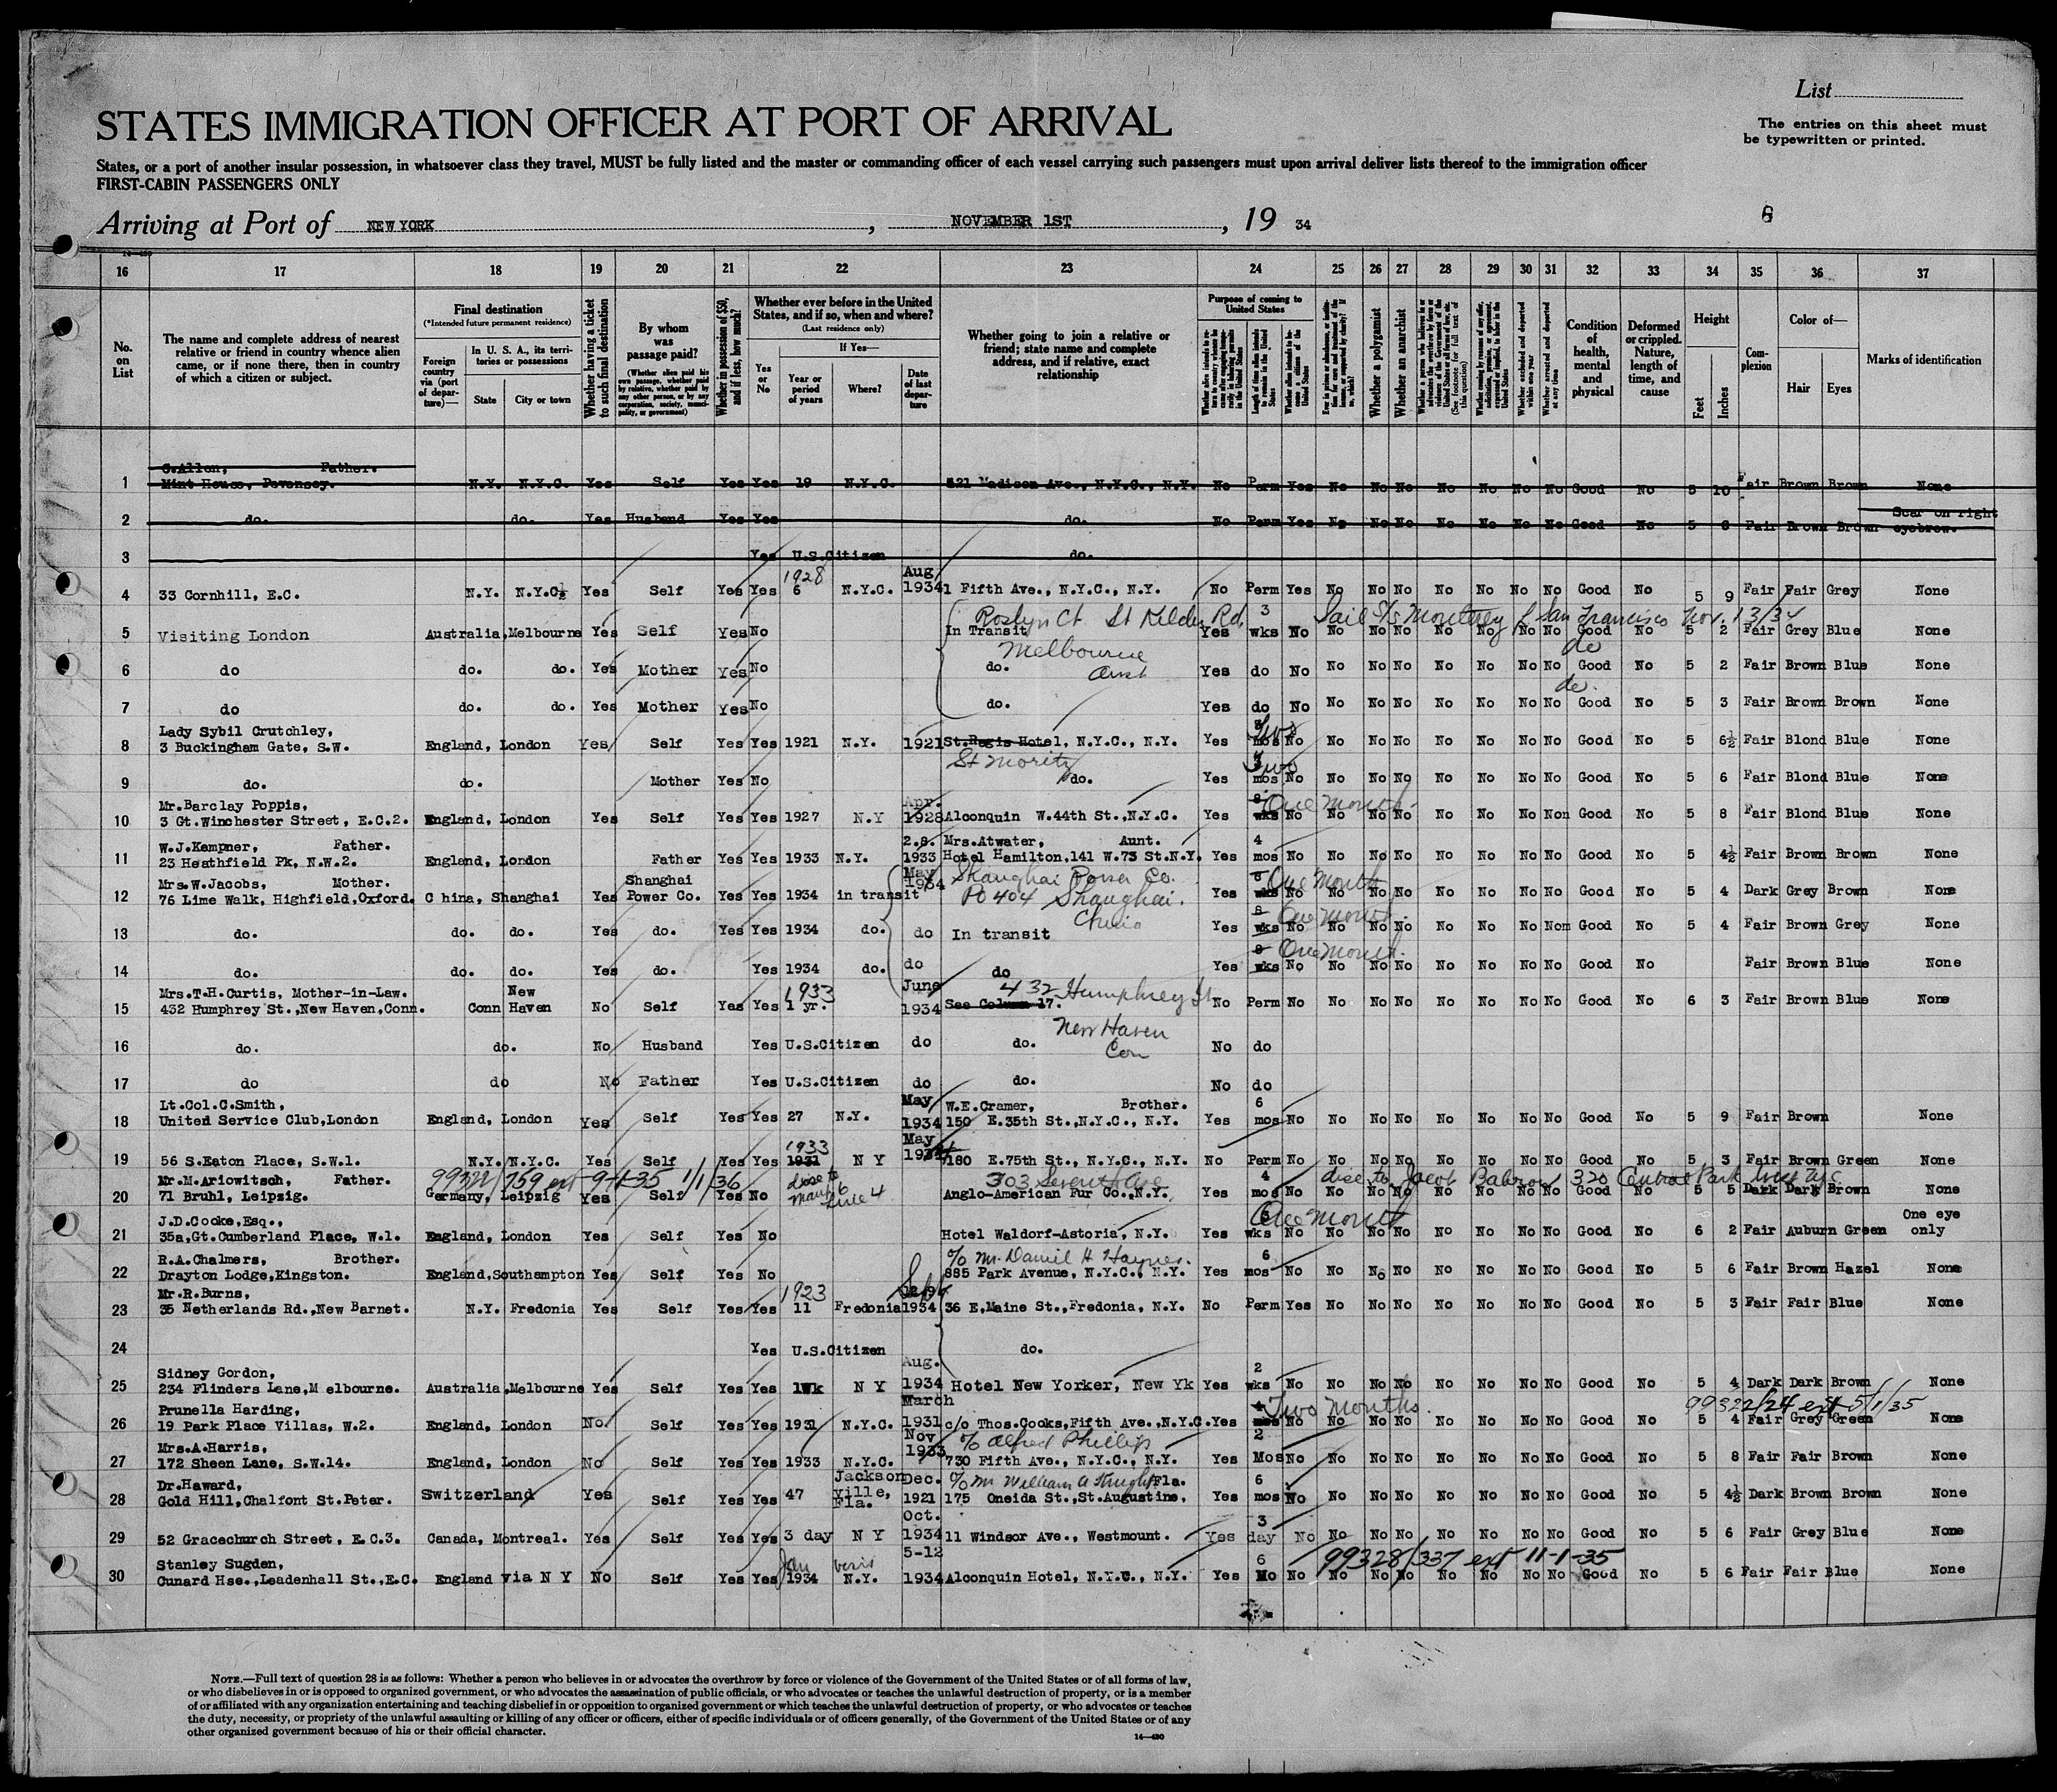 List
The entries on this sheet must
be typewritten or printed.
STATES IMMIGRATION OFFICER AT PORT OF ARRIVAL
States, or a port of another insular possession, in whatsoever class they travel, MUST be fully listed and the master or commanding officer of each vessel carrying such passengers must upon arrival deliver lists thereof to the immigration officer
FIRST-CABIN PASSENGERS ONLY
Arriving at Port of NEW YORK, NOVEMBER 1ST, 19 34
16 17 18 19 20 21 22 23 24 25 26 27 28 29 30 31 32 33 34 35 36 37
No. on List
The name and complete address of nearest relative or friend in country whence alien came, or if none there, then in country of which a citizen or subject.
Final destination
(*Intended future permanent residence)
Foreign country via (port of departure)—
In U. S. A., its territories or possessions
State
City or town
Whether having a ticket to such final destination
By whom was passage paid?
(Whether alien paid his own passage, whether paid by relative, whether paid by any other person, or by any corporation, society, municipality, or government)
Whether in possession of $50, and if less, how much?
Whether ever before in the United States, and if so, when and where?
(Last residence only)
Yes or No
If Yes—
Year or period of years
Where?
Date of last departure
Whether going to join a relative or friend; state name and complete address, and if relative, exact relationship
Purpose of coming to United States
Whether a polygamist
Whether an anarchist
Condition of health, mental and physical
Deformed or crippled. Nature, length of time, and cause
Height
Feet
Inches
Complexion
Color of—
Hair
Eyes
Marks of identification
C.Allen, Father.
1 Mint House, Pevensey. N.Y. N.Y.C. Yes Self Yes Yes 19 N.Y.C. 521 Madison Ave., N.Y.C., N.Y. No Perm Yes No No No No No No No Good No 5 10 Fair Brown Brown None
2 do. do. Yes Husband Yes Yes do. No Perm Yes No No No No No No No Good No 5 6 Fair Brown Brown Scar on right eyebrow.
3 Yes U.S.Citizen do.
1928 Aug
4 33 Cornhill, E.C. N.Y. N.Y.C. Yes Self Yes Yes 6 N.Y.C. 1934 1 Fifth Ave., N.Y.C., N.Y. No Perm Yes No No No No No No No Good No 5 9 Fair Fair Grey None
Roslyn Ct St Kilda Rd. 3 Sail S/S Monterey f San Francisco Nov. 13/34
5 Visiting London Australia, Melbourne Yes Self Yes No In Transit Yes wks No No No No No No No No Good No 5 2 Fair Grey Blue None
Melbourne do
6 do do. do. Yes Mother Yes No do. Aust Yes do No No No No No No No No Good No 5 2 Fair Brown Blue None
do.
7 do do. do. Yes Mother Yes No do. Yes do No No No No No No No No Good No 5 3 Fair Brown Brown None
Lady Sybil Crutchley, Two
8 3 Buckingham Gate, S.W. England, London Yes Self Yes Yes 1921 N.Y. 1921 St.Regis Hotel, N.Y.C., N.Y. Yes mos No No No No No No No No Good No 5 6½ Fair Blond Blue None
St Moritz Two
9 do. do. Mother Yes No do. Yes mos No No No No No No No No Good No 5 6 Fair Blond Blue None
Mr.Barclay Poppis, Apr. 8 One month
10 3 Gt.Winchester Street, E.C.2. England, London Yes Self Yes Yes 1927 N.Y 1928 Alconquin W.44th St.,N.Y.C. Yes wks No No No No No No No Non Good No 5 8 Fair Blond Blue None
W.J.Kempner, Father. 2.8. Mrs.Atwater, Aunt. 4
11 23 Heathfield Pk, N.W.2. England, London Father Yes Yes 1933 N.Y. 1933 Hotel Hamilton,141 W.73 St.N.Y. Yes mos No No No No No No No No Good No 5 4½ Fair Brown Brown None
Mrs.W.Jacobs, Mother. Shanghai May Shanghai Power Co. 8 One Month
12 76 Lime Walk, Highfield,Oxford. C hina, Shanghai Yes Power Co. Yes Yes 1934 in transit 1934 PO 404 Shanghai. Yes wks No No No No No No No No Good No 5 4 Dark Grey Brown None
China 8 One Month
13 do. do. do. Yes do. Yes Yes 1934 do. do In transit Yes wks No No No No No No No Nom Good No 5 4 Fair Brown Grey None
8 One Month.
14 do. do. do. Yes do. Yes 1934 do. do do Yes wks No No No No No No No No Good No Fair Brown Blue None
Mrs.T.H.Curtis, Mother-in-Law. New 1933 June 432 Humphrey St
15 432 Humphrey St.,New Haven,Conn. Conn Haven No Self Yes Yes 1 yr. 1934 See Column 17. No Perm No No No No No No No No Good No 6 3 Fair Brown Blue None
New Haven
16 do. do. No Husband Yes U.S.Citizen do do. Con No do
17 do do No Father Yes U.S.Citizen do do. No do
Lt.Col.C.Smith, May W.E.Cramer, Brother. 6
18 United Service Club,London England, London Yes Self Yes Yes 27 N.Y. 1934 150 E.35th St.,N.Y.C., N.Y. Yes mos No No No No No No No No Good No 5 9 Fair Brown None
1933 May
19 56 S.Eaton Place, S.W.1. N.Y. N.Y.C. Yes Self Yes Yes 1931 N Y 180 E.75th St., N.Y.C., N.Y. No Perm No No No No No No No No Good No 5 3 Fair Brown Green None
Mr.M.Ariowitsch, Father. 303 Seventh Ave 4 Jacob 320 Central Park West
20 71 Bruhl, Leipzig. Germany, Leipzig Yes Self Yes No Anglo-American Fur Co.,N.Y. Yes mos No No No No No No No No Good No 5 5 Dark Dark Brown None
J.D.Cooke,Esq., One month One eye
21 35a,Gt.Cumberland Place, W.1. England, London Yes Self Yes No Hotel Waldorf-Astoria, N.Y. Yes wks No No No No No No No No Good No 6 2 Fair Auburn Green only
R.A.Chalmers, Brother. c/o Mr. Daniel H Haynes. 6
22 Drayton Lodge,Kingston. England,Southampton Yes Self Yes No 885 Park Avenue, N.Y.C., N.Y. Yes mos No No No No No No No No Good No 5 6 Fair Brown Hazel None
Mr.R.Burns, 1923 Sept
23 35 Netherlands Rd.,New Barnet. N.Y. Fredonia Yes Self Yes Yes 11 Fredonia 1934 36 E.Maine St.,Fredonia, N.Y. No Perm Yes No No No No No No No Good No 5 3 Fair Fair Blue None
24 Yes U.S.Citizen do.
Sidney Gordon, Aug. 2
25 234 Flinders Lane,M elbourne. Australia,Melbourne Yes Self Yes Yes 1Wk N Y 1934 Hotel New Yorker, New Yk Yes wks No No No No No No No No Good No 5 4 Dark Dark Brown None
Prunella Harding, March Two months. 99322/24 ext 5/1/35
26 19 Park Place Villas, W.2. England, London No Self Yes Yes 1931 N.Y.C. 1931 c/o Thos.Cooks,Fifth Ave.,N.Y.C. Yes mos No No No No No No No No Good No 5 4 Fair Grey Green None
Mrs.A.Harris, Nov c/o Alfred Phillips 2
27 172 Sheen Lane, S.W.14. England, London No Self Yes Yes 1933 N.Y.C. 1933 730 Fifth Ave., N.Y.C., N.Y. Yes Mos No No No No No No No No Good No 5 8 Fair Fair Brown None
Dr.Haward, Jackson Dec. c/o Mr William A Knight Fla. 6
28 Gold Hill,Chalfont St.Peter. Switzerland Yes Self Yes Yes 47 Ville, Fla. 1921 175 Oneida St.,St.Augustine, Yes mos No No No No No No No No Good No 5 4½ Dark Brown Brown None
Oct. 3
29 52 Gracechurch Street, E.C.3. Canada, Montreal. Yes Self Yes Yes 3 day N Y 1934 11 Windsor Ave., Westmount. Yes day No No No No No No No No Good No 5 6 Fair Grey Blue None
Stanley Sugden, Jan 5-12 6 99328/337 ext 11-1-35
30 Cunard Hse.,Leadenhall St.,E.C. England via N Y No Self Yes Yes 1934 N.Y. 1934 Alconquin Hotel, N.Y.C., N.Y. Yes Mo No No No No No No No No Good No 5 6 Fair Fair Blue None
NOTE.—Full text of question 28 is as follows: Whether a person who believes in or advocates the overthrow by force or violence of the Government of the United States or of all forms of law,
or who disbelieves in or is opposed to organized government, or who advocates the assassination of public officials, or who advocates or teaches the unlawful destruction of property, or is a member
of or affiliated with any organization entertaining and teaching disbelief in or opposition to organized government or which teaches the unlawful destruction of property, or who advocates or teaches
the duty, necessity, or propriety of the unlawful assaulting or killing of any officer or officers, either of specific individuals or of officers generally, of the Government of the United States or of any
other organized government because of his or their official character.
14—430